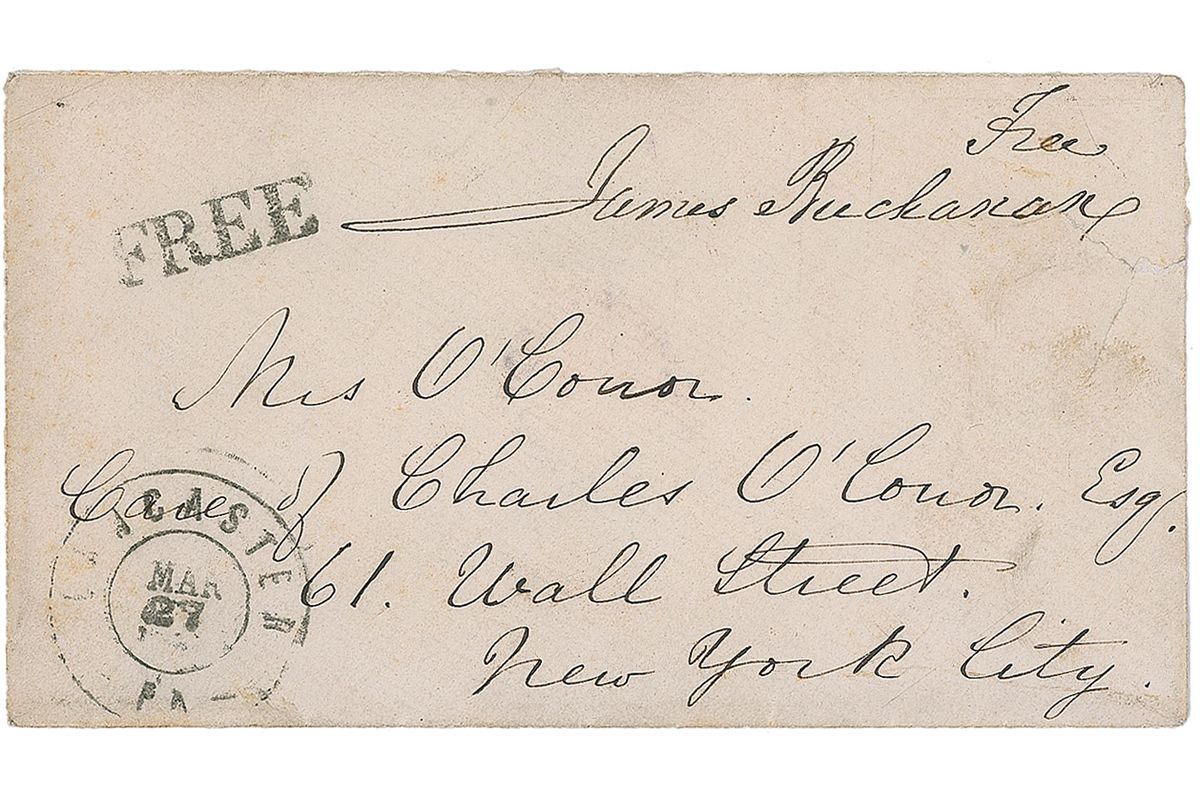 Free
James Buchanan
FREE
Mrs O'Conor.
Care of Charles O'Conor. Esq.
61. Wall Street.
New York City.
LANCASTER
MAR
27
PA